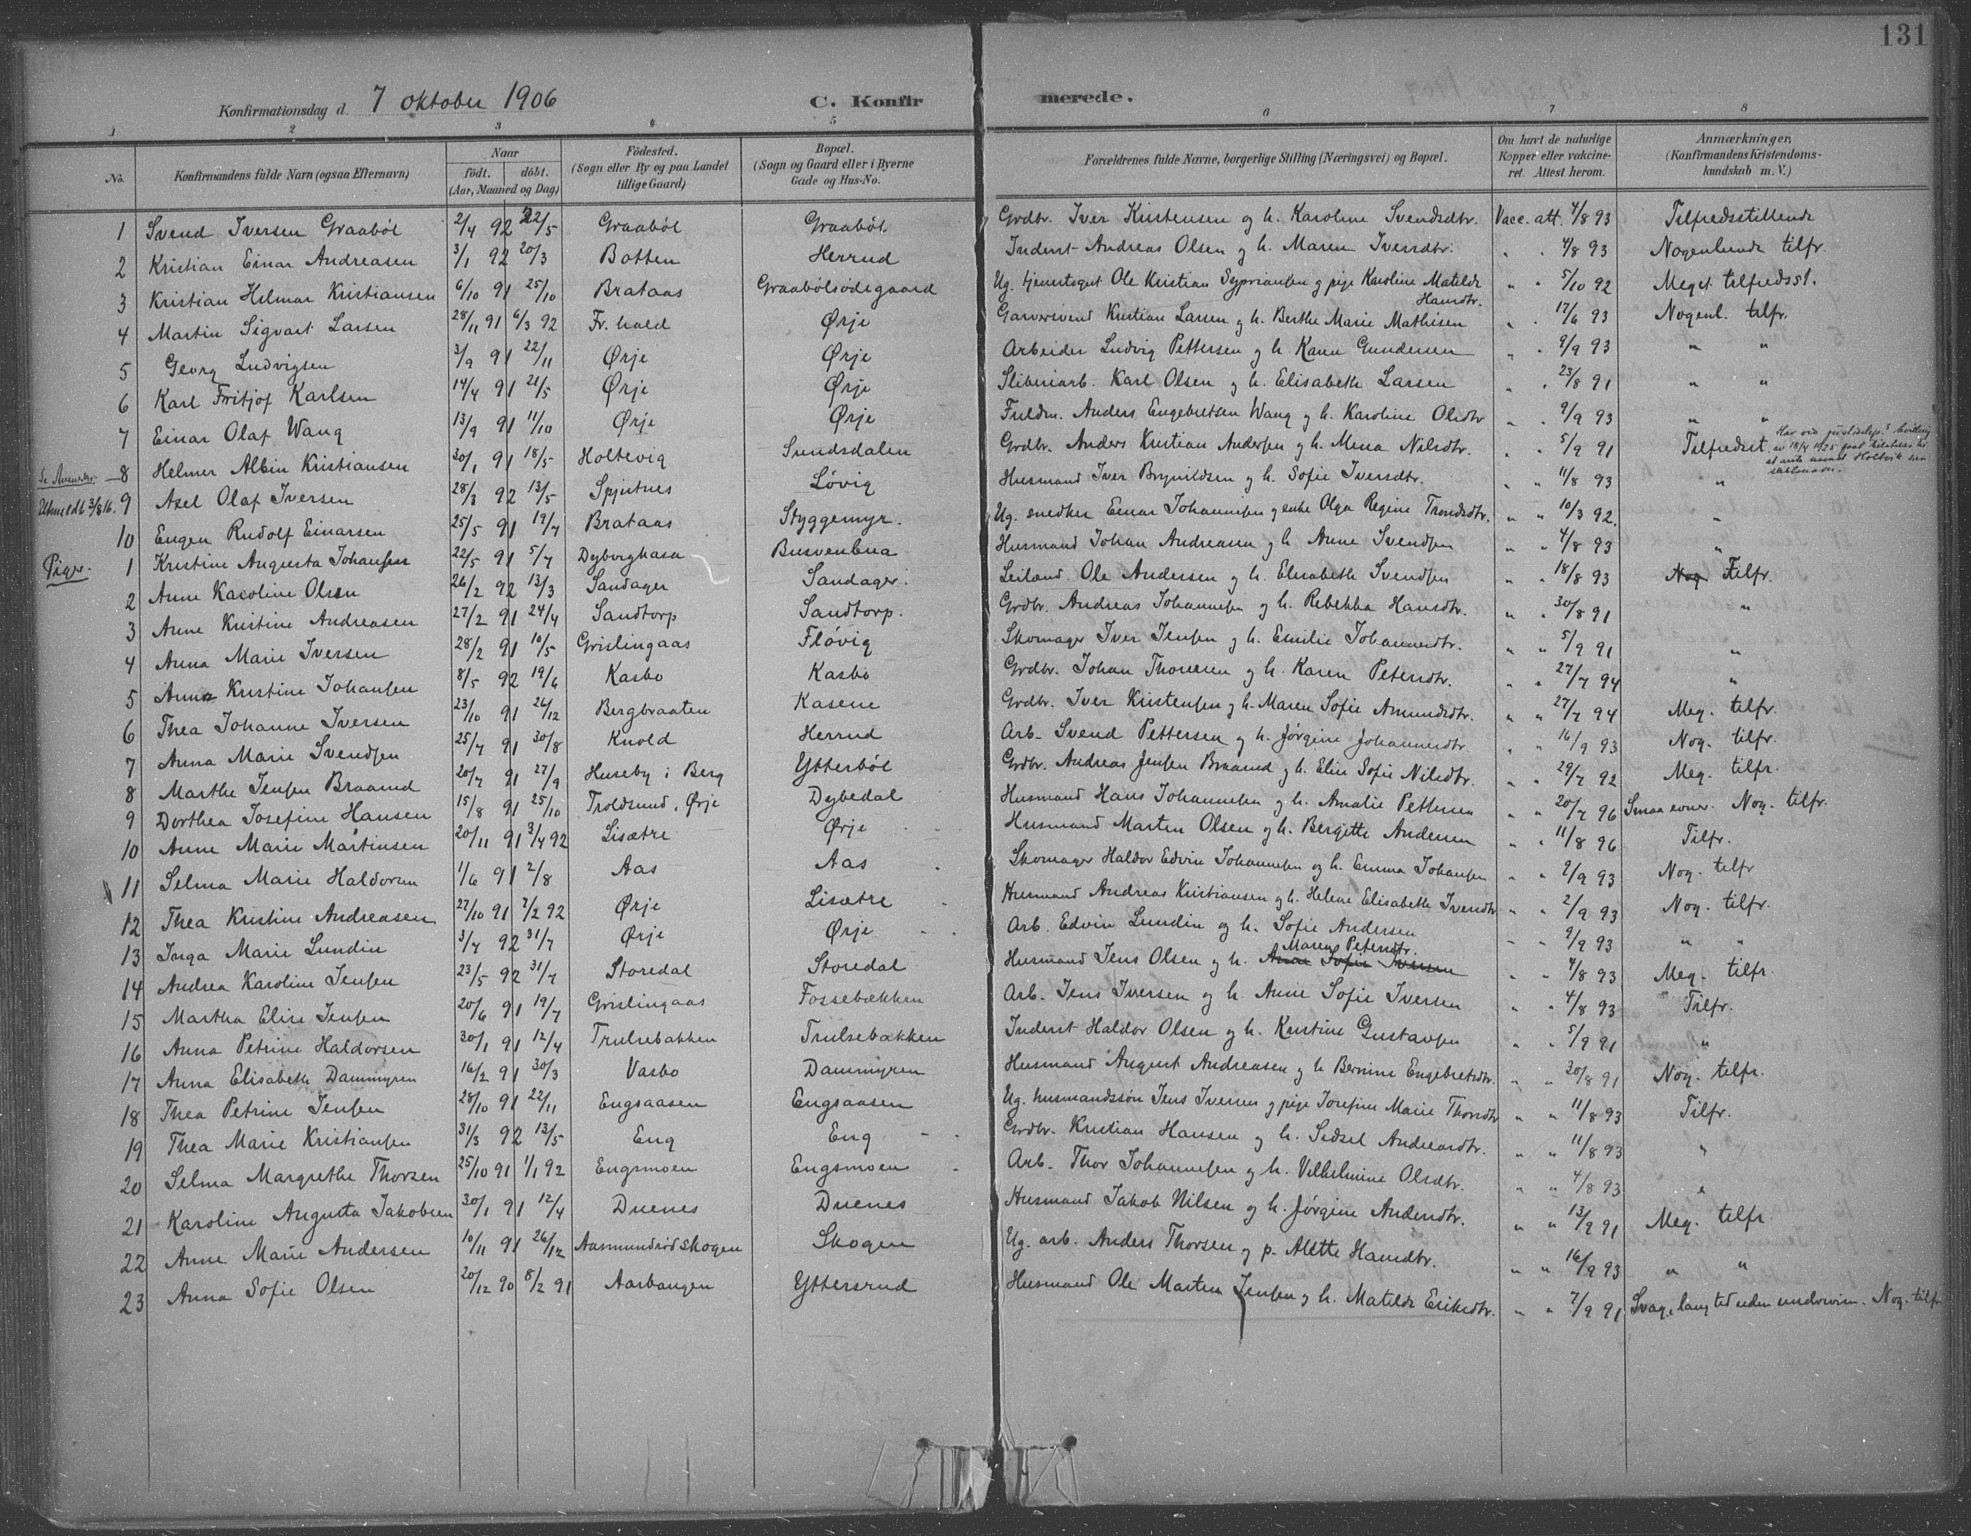 131
Konfirmationsdag d. 7 oktober 1906 C. Konfirmerede.
1 2 3 4 5 6 7 8
No. Konfirmandens fulde Navn (ogsaa Efternavn) Naar født. døbt. (Aar, Maaned og Dag) Fødested. (Sogn eller By og paa Landet tillige Gaard) Bopæl. (Sogn og Gaard eller i Byerne Gade og Hus-No. Forældrenes fulde Navne, borgerlige Stilling (Næringsvei) og Bopæl. Om havt de naturlige Kopper eller vakcineret. Attest herom. Anmærkninger, (Konfirmandens Kristendomskundskab m. V.)
1 Svend Iversen Graabøl 2/4 92 22/5 Graabøl Graabøl Grdbr. Iver Kristensen og h. Karoline Svendsdtr. Vacc. att. 4/8 93 Tilfredsstillende
2 Kristian Einar Andreasen 3/1 92 20/3 Botten Herrud Inderst Andreas Olsen og h. Maren Iversdtr. " " 4/8 93 Nogenlunde tilfr.
3 Kristian Hilmar Kristiansen 6/10 91 25/10 Brataas Graabølsødegaard Ug. tjenstegut Ole Kristian Sypriansen og pige Karoline Matilde Hansdtr. " " 5/10 92 Meget tilfredsst.
4 Martin Sigvart Larsen 28/11 91 6/3 92 Fr.hald Ørje Garversvend Kristian Larsen og h. Berthe Marie Mathisen " " 17/6 93 Nogenl. tilfr.
5 Georg Ludvigsen 3/9 91 22/11 Ørje Ørje Arbeider Ludvig Pettersen og h. Karen Gundersen " " 9/9 93 " "
6 Karl Fritjof Karlsen 14/4 91 21/5 Ørje Ørje Sliberiarb. Karl Olsen og h. Elisabeth Larsen " " 23/8 91 " "
7 Einar Olaf Wang 13/9 91 11/10 Ørje Ørje Fuldm. Anders Engebretsen Wang og h. Karoline Olsdtr " " 9/9 93 " "
8 Helmer Albin Kristiansen 30/1 91 18/5 Holtevig Sundsdalen Grdbr. Anders Kristian Andersen og h. Mina Nilsdtr. " " 5/9 91 Tilfredsst. Har ved justisdep.s bevilling av 18/4 1925 faat tilladelse til at anta navnet Holtvik som slektsnavn.
Utmeldt 3/8 16. 9 Axel Olaf Iversen 28/3 92 13/5 Spjutnes Løvig Husmand Iver Brynildsen og h. Sofie Iversdtr. " " 11/8 93 "
10 Eugen Rudolf Einarsen 25/5 91 19/7 Brataas Styggemyr. Ug. snedker Einar Johannesen og enke Olga Regine Trondsdtr. " " 10/3 92. "
Piger. 1 Kristine Augusta Johansen 22/5 91 5/7 Dyborghasa Busvenbua Husmand Johan Andreasen og h. Anne Svendsen " " 4/8 93 "
2 Anne Karoline Olsen 26/2 92 13/3 Sandager Sandager. Leilænd. Ole Andersen og h. Elisabeth Svendsen " " 18/8 93 Nog Tilfr.
3 Anne Kristine Andreasen 27/2 91 24/4 Sandtorp Sandtorp. Grdbr. Andreas Johannesen og h. Rebekka Hansdtr. " " 30/8 91 "
4 Anna Marie Iversen 28/2 91 10/5 Grislingaas Fløvig Skomager Iver Jensen og h. Emilie Johannesdtr. " " 5/9 91 "
5 Anna Kristine Johansen 8/5 92 19/6 Kasbo Kasbo Grdbr. Johan Thoresen og h. Karen Petersdtr. " " 27/7 94 "
6 Thea Johanne Iversen 23/10 91 26/12 Bergbraaten Kasene Grdbr. Iver Kristensen og h. Maren Sofie Amundsdtr. " " 27/7 94 Meg. tilfr.
7 Anna Marie Svendsen 25/7 91 30/8 Knold Herrud Arb. Svend Pettersen og h. Jørgine Johannesdtr. " " 16/9 93 Nog. tilfr.
8 Marthe Jensen Braarud 20/7 91 27/9 Huseby i Berg Ytterbøl Grdbr. Andreas Jensen Braarud og h. Elise Sofie Nilsdtr. " " 29/7 92 Meg. tilfr.
9 Dorthea Josefine Hansen 15/8 91 25/10 Troldsund, Ørje Dybedal Husmand Hans Johannesen og h. Amalie Pettersen " " 20/7 96 Smaa evner. Nog. tilfr.
10 Anne Marie Martinsen 20/11 91 3/4 92 Lisætre Ørje Husmand Martin Olsen og h. Bergitte Andersen " " 11/8 96 Tilfr.
11 Selma Marie Haldorsen 1/6 91 2/8 Aas Aas Skomager Haldor Edvin Johannesen og h. Emma Johansen " " 2/9 93 Nog. tilfr
12 Thea Kristine Andreasen 27/10 91 7/2 92 Ørje Lisætre Husmand Andreas Kristiansen og h. Helene Elisabeth Iversdtr " " 2/9 93 Nog. tilfr.
13 Inga Marie Lundin 3/7 92 31/7 Ørje Ørje Arb. Edvin Lundin og h. Sofie Andersen " " 9/9 93 " "
14 Andrea Karoline Jensen 23/5 92 31/7 Storedal Storedal Husmand Jens Olsen og h. Maren Petersdtr. Anne Sofie Iversen " " 4/8 93 Meg. tilfr.
15 Martha Elise Jensen 20/6 91 19/7 Grislingaas Fossebækken Arb. Jens Iversen og h. Anne Sofie Iversen " " 4/8 93 Tilfr.
16 Anna Petrine Haldorsen 30/1 91 12/4 Trulsebakken Trulsebækken Inderst Haldor Olsen og h. Kristine Gustavsen " " 5/9 91 "
17 Anna Elisabeth Dammyren 16/2 91 30/3 Vasbo Dammyren Husmand August Andreasen og h Bernine Engebretsdtr. " " 30/8 91 Nog. tilfr.
18 Thea Petrine Jensen 28/10 91 22/11 Engsaasen Engsaasen Ug. husmandssøn Jens Iversen og pige Josefine Marie Thorsdtr " " 11/8 93 Tilfr.
19 Thea Marie Kristiansen 31/3 92 13/5 Eng Eng Grdbr. Kristian Hansen og h. Sidsel Andreasdtr. " " 11/8 93 "
20 Selma Margrethe Thorsen 25/10 91 1/1 92 Engsmoen Engsmoen Arb. Thor Johannesen og h. Vilhelmine Olsdtr. " " 4/8 93 "
21 Karoline Augusta Jakobsen 30/1 91 12/4 Duenes Duenes Husmand Jakob Nilsen og h. Jørgine Andersdtr. " " 13/9 91 Meg. tilfr.
22 Anne Marie Andersen 10/11 91 26/12 Aasmundrødskogen Skogen Ug. arb. Anders Thorsen og p. Alette Hansdtr. " " 16/9 93 " "
23 Anna Sofie Olsen 20/12 90 8/2 91 Aarbangen Yttersrud Husmand Ole Martin Jensen og h. Matilde Eriksdtr. " " 7/9 91 Svag, lang tid uden undervisn. Nog. tilfr